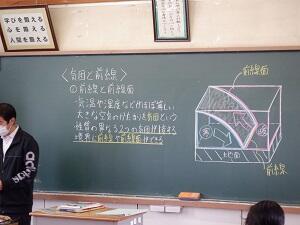 学びを鍛える
心を鍛える
人間を鍛える
〈気団と前線〉
①前線と前線面
・気温や湿度などがほぼ等しい
大きな空気のかたまりを気団という
・性質の異なる2つの気団が接する
境界に前線や前線面ができる
前線面
寒
暖
地面
前線
adidas